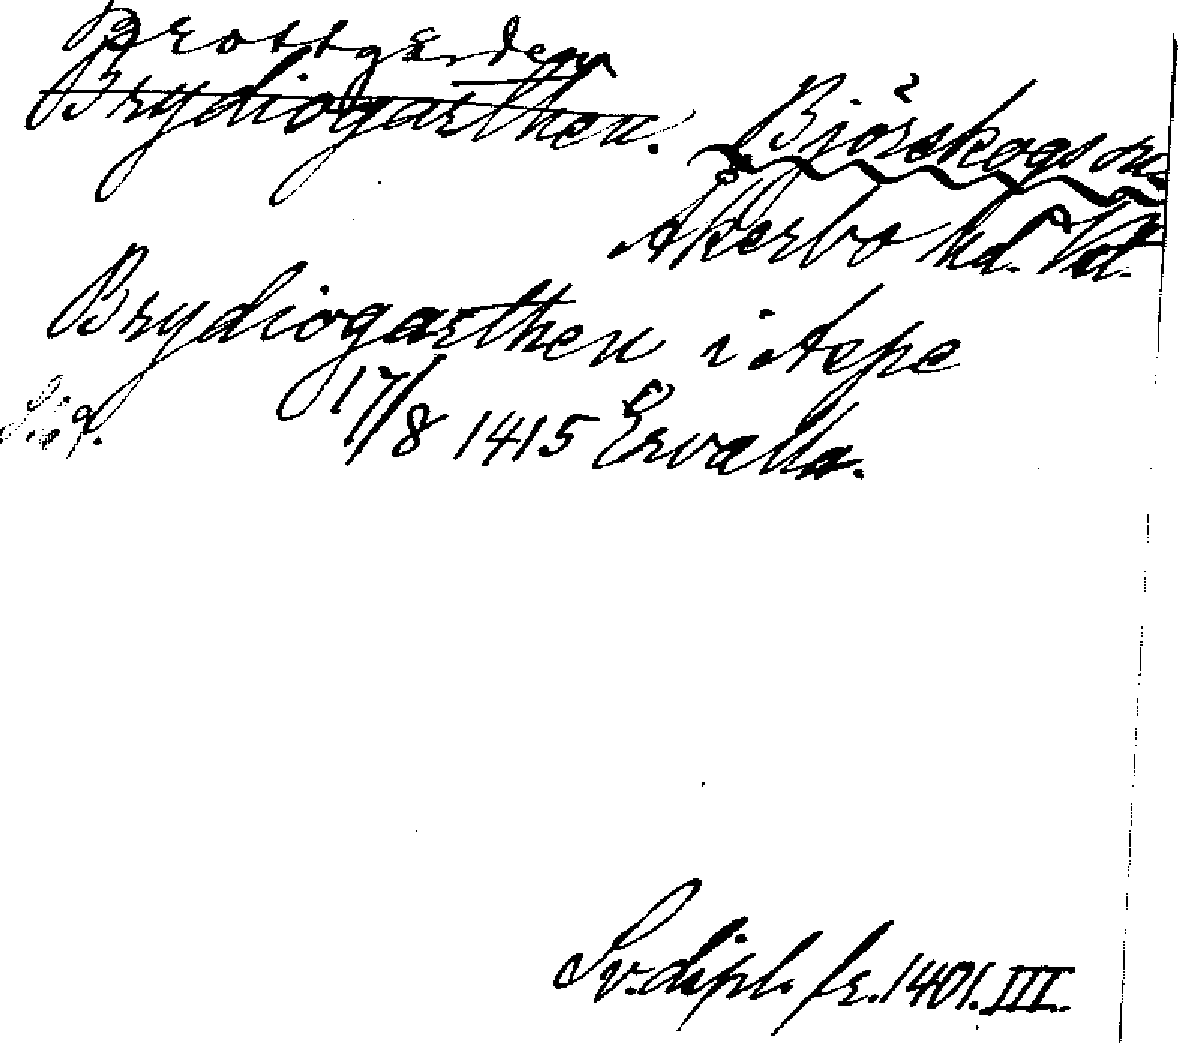 Brottgården
Brydiogarthen. Björskogs sn
Åkerbo hd. Vstl.
Brydiogarthen i Aepe
17/8 1415 Ervalla.
Sv. dipl. fr. 1401. III.